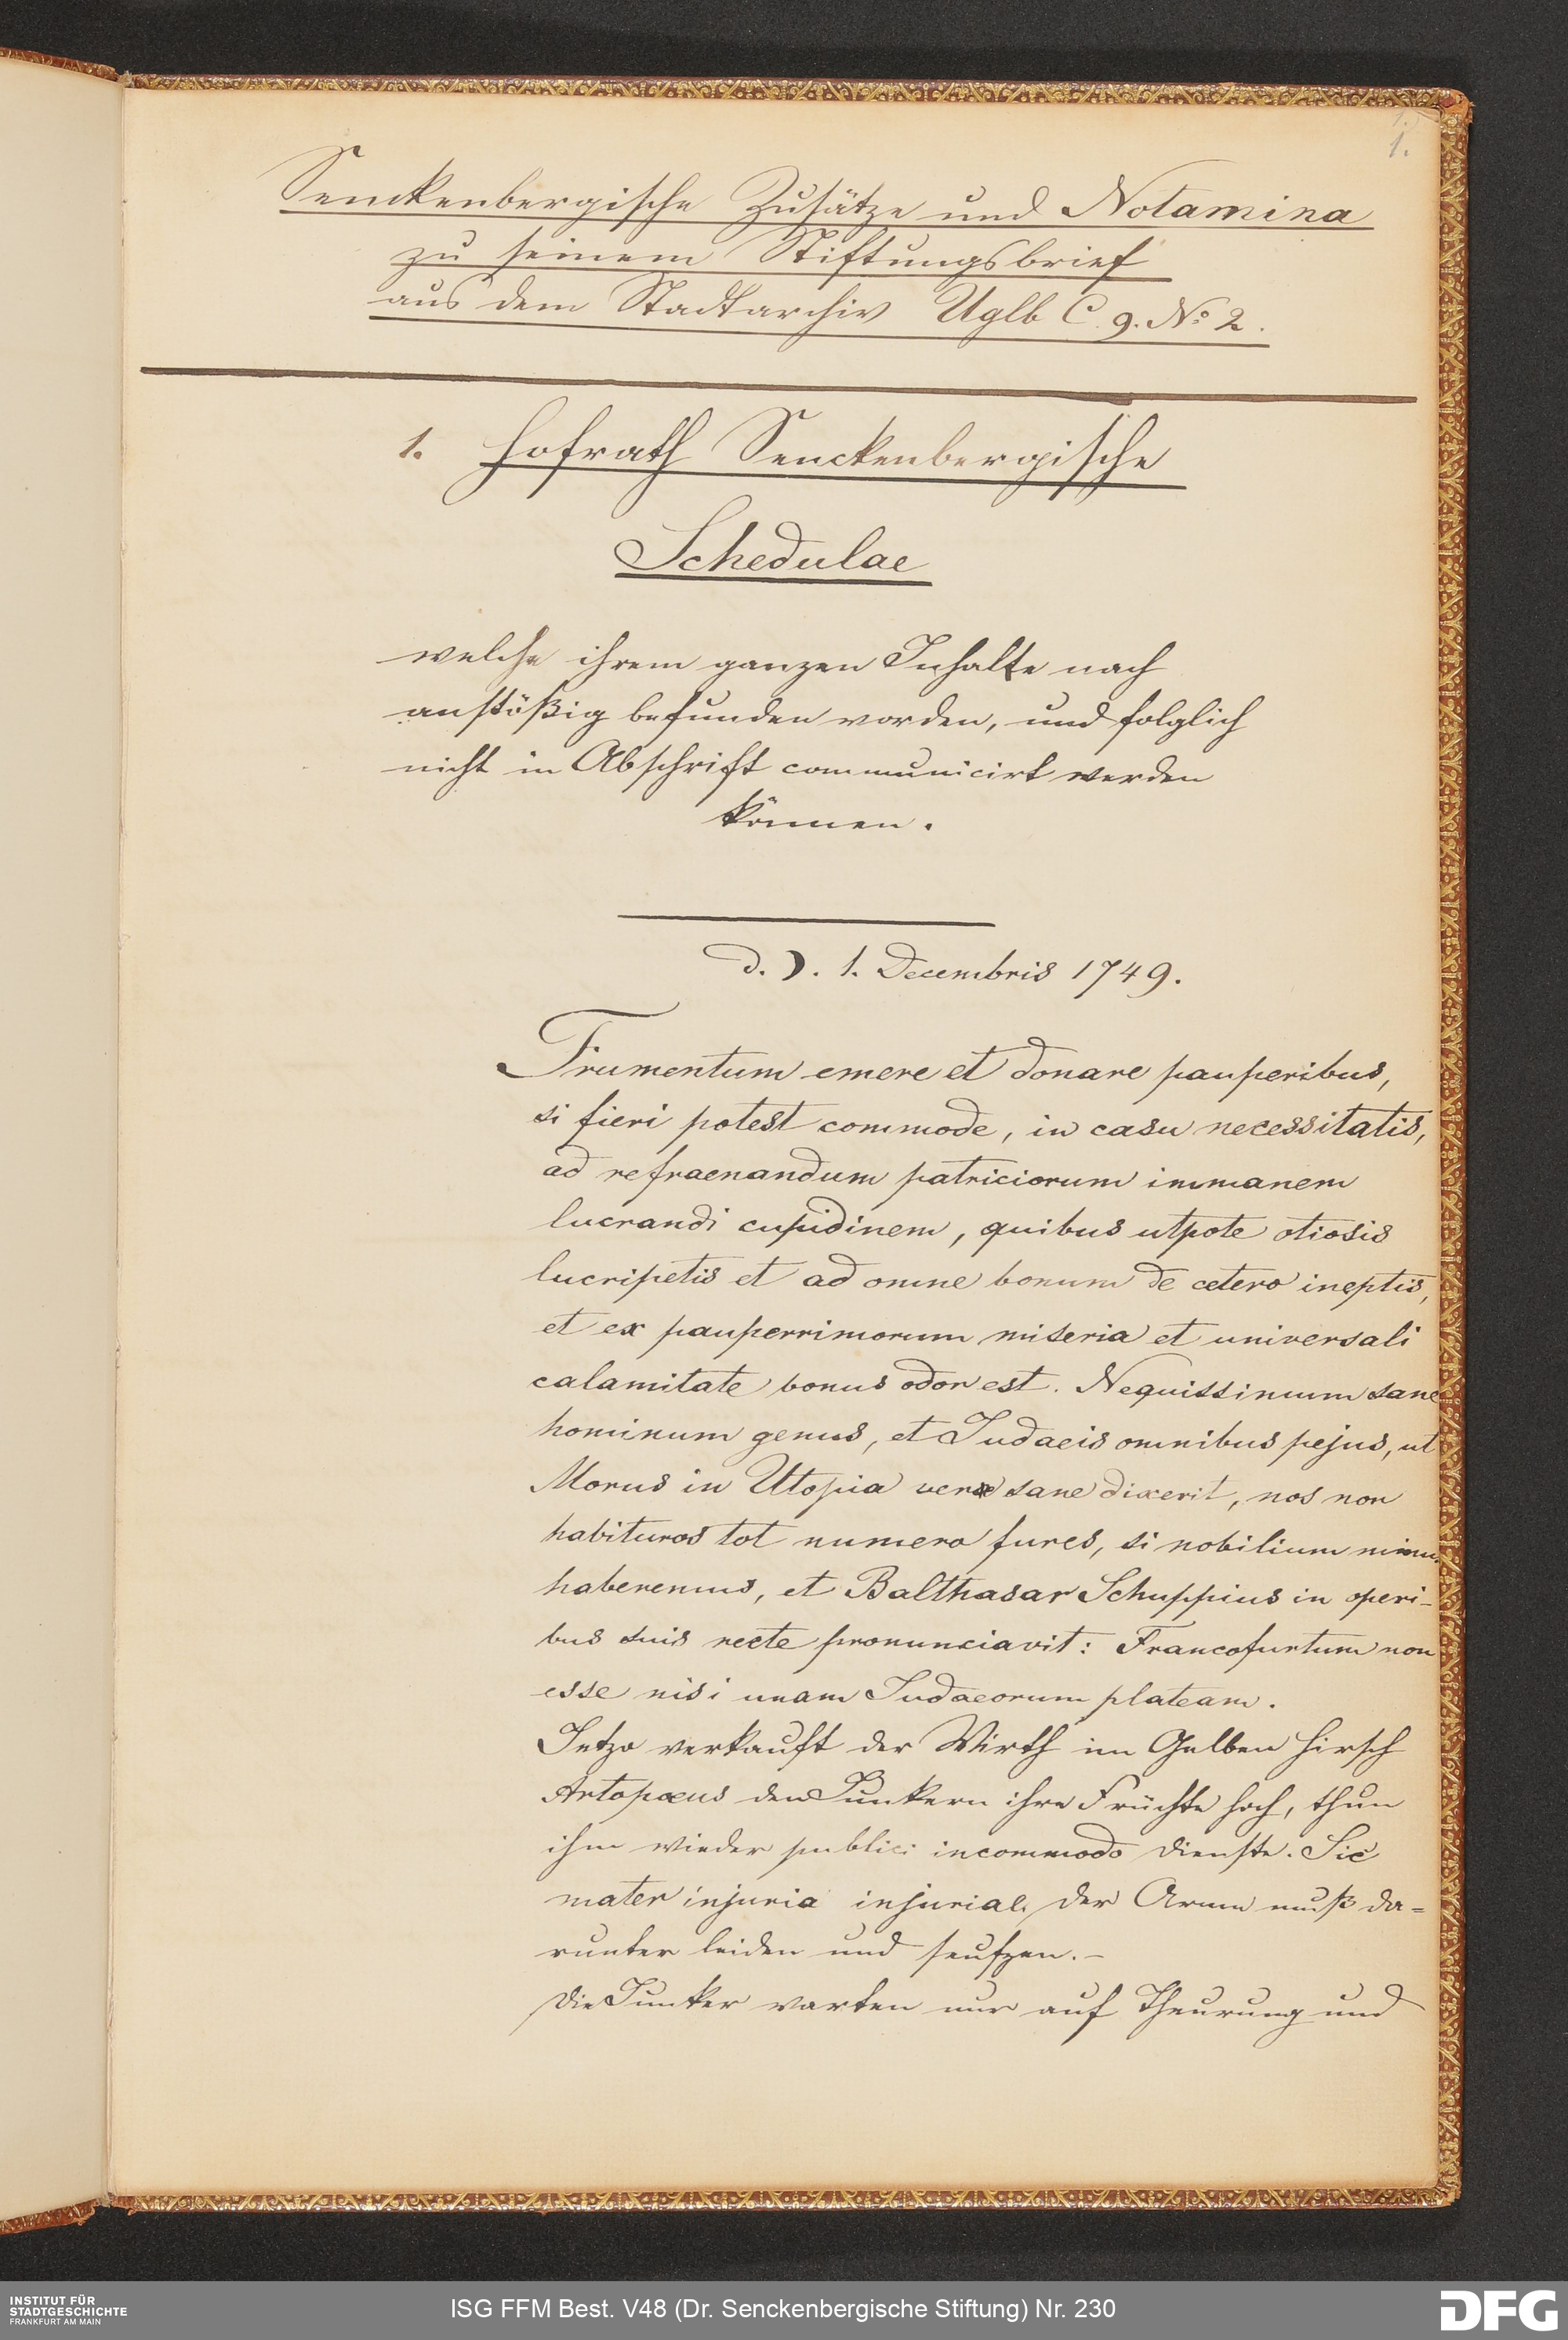 1.
Senckenbergische Zusätze und Notamina
zu seinem Stiftungsbrief
aus dem Stadtarchiv Uglb C. 9. No 2.
1. Hofrath Senckenbergische
Schedulae
welche ihrem ganzen Inhalte nach
anstößig befunden worden, und folglich
nicht in Abschrift communicirt werden
können.
d. ☽. 1. Decembris 1749.
Frumentum emere et donare pauperibus,
si fieri potest commode, in casu necessitatis,
ad refraenandum patriciorum immanem
lucrandi cupidinem, quibus utpote otiosis
lucripetis et ad omne bonum de cetero ineptis,
et ex pauperrimorum miseria et universali
calamitate bonus odor est. Nequissimum sane
hominum genus, et Judaeis omnibus pejus, ut
Morus in Utopia vere sane dixerit, nos non
habituros tot numero fures, si nobilium minus
haberemus, et Balthasar Schuppius in operi-
bus suis recte pronunciavit: Francofurtum non
esse nisi unam Judaeorum plateam.
Jetzo verkauft der Wirth im Gelben Hirsch
Artopoeus den Junkern ihre Früchte hoch, thun
ihm wieder publici incommodo Dienste. Sic
mater injuria injuriae. Der Arme muß da=
runter leiden und seufzen. –
Die Junker warten nur auf Theurung und
INSTITUT FÜR
STADTGESCHICHTE
FRANKFURT AM MAIN
ISG FFM Best. V48 (Dr. Senckenbergische Stiftung) Nr. 230
DFG